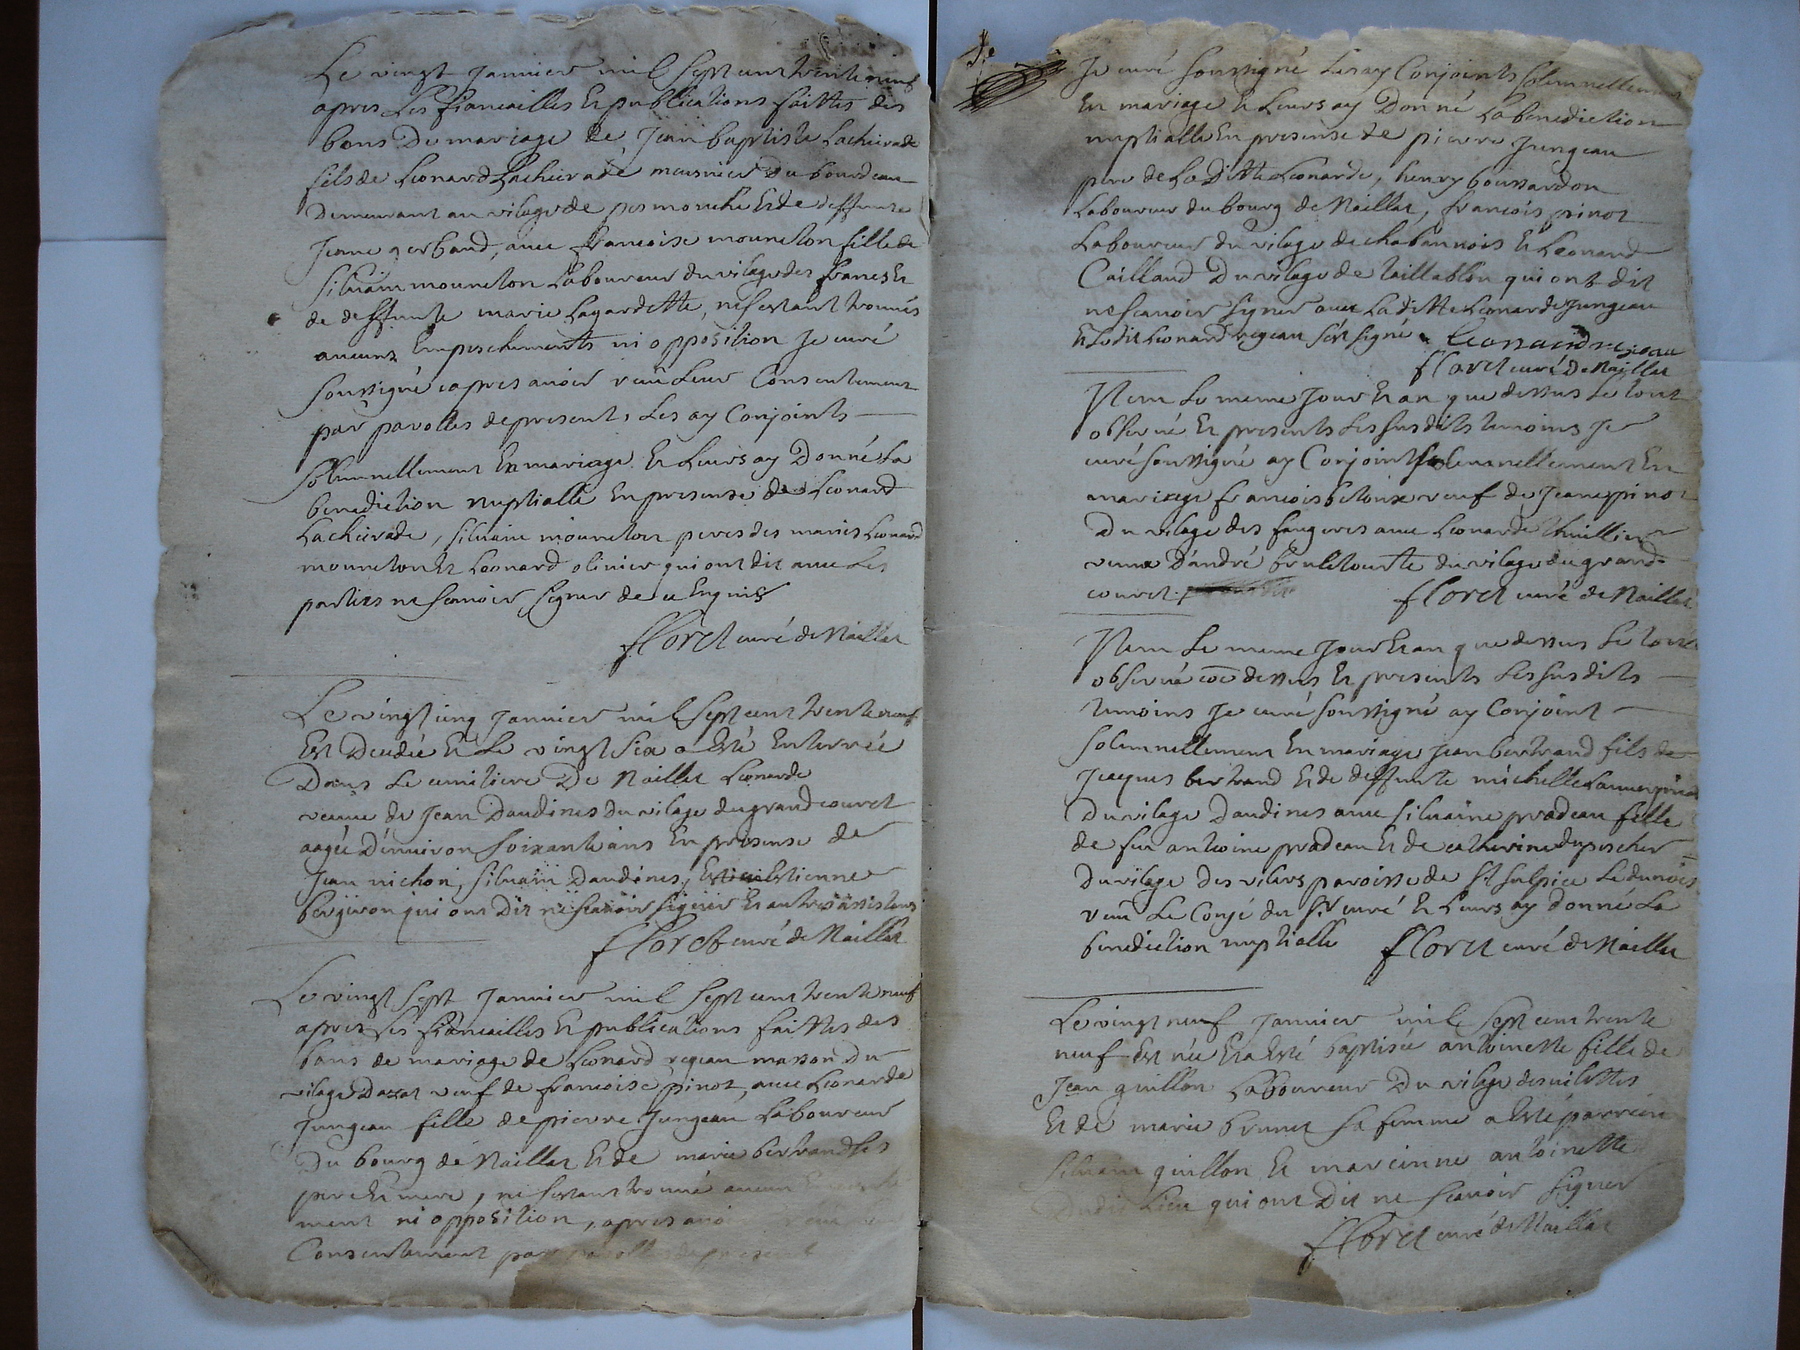 Le vingt Janvier mil Sept cent trente neuf
apres Les fiancailles Et publications faittes des
bans De mariage de Jean baptiste Lachierade
fils de Leonard Lachierade meusnier du bourdeau
Demeurant au vilage de et de deffunte
Jeanne gerbaud, avec francoise moureton fille de
Silvain moureton Laboureur du vilage des francs Et
de deffunte marie Lagardette, ne sestant trouvés
aucuns Empeschements ni opposition Je curé
soussigné apres avoir receu Leur Consentement
par parolles de present, Les ay Conjoints
Solemnellement En mariage Et Leurs ay Donné La
benediction Nuptialle En presence de Leonard
Lachierade, Silvain moureton peres des mariés Leonard
moureton Et Leonard olivier qui ont dit avec Les
parties ne scavoir signer de ce Enquis
floret curé de Naillat
Le vingt cinq Janvier mil Sept cent trente neuf
Est Decedée Et Le vingt Six a Esté Enterrée
Dans Le cimitiere De Naillat Leonarde
veuve de Jean Daudines du vilage du grand couret
aagée D'environ soixante ans En presence de
Jean nichon, Silvain Daudines, Estienne
bergeron qui ont Dit ne scavoir signer Et autres assistans
floret curé de Naillat
Le vingt Sept Janvier mil Sept cent trente neuf
apres Les fiancailles Et publications faittes des
bans de mariage de Leonard rejeau masson du
vilage Dazat veuf de francoise pinot, avec Leonarde
Jungeau fille de pierre Jungeau Laboureur
Du bourg de Naillat Et de marie bertrand Ses
pere Et mere, ne sestant trouvé aucun Empesche
ment ni opposition, apres avoir receu
Consentement par parolles de present
Je curé soussigné Les ay Conjoints solemnellement
En mariage Et Leurs ay Donné La benediction
nuptialle En presence de pierre Jungeau
pere de La Ditte Leonarde, henry boussardon
Laboureur du bourg de Naillat, francois pinot
Laboureur du vilage de chabannois Et Leonard
Caillaud Du vilage de qui ont dit
ne scavoir signer avec La ditte Leonarde Jungeau
Et Ledit Leonard rejeau s'est signé Leonard rejeau
floret curé de Naillat
Item Le meme Jour Et an que dessus Le tout
observé Et presents Les susdits temoins Je
curé soussigné ay Conjoint solemnellement En
mariage francois betoux veuf de Jeanne pinot
Du vilage des faugeres avec Leonarde thuillier
veuve D'andré brulelourte du vilage du grand
couret.
floret curé de Naillat
Item Le meme Jour Et an que dessus Le tout
observé coe dessus Et presents Les susdits
temoins Je curé soussigné ay Conjoint
solemnellement En mariage Jean bertrand fils de
Jacques bertrand Et de deffunte michelle
Du vilage Daudines avec silvaine pradeau fille
de feu antoine pradeau Et de catherine dupescher
Du vilage des vilars paroisse de St Sulpice Le dunois
veu Le Congé du Sr curé Et Leurs ay donné La
benediction nuptialle floret curé de Naillat
Le vingt neuf Janvier mil Sept cent trente
neuf Est née Et a Esté baptisée antoinette fille de
Jean guillon Laboureur Du vilage des vilettes
Et de marie brunet sa femme a Esté parrein
Silvain guillon Et mareinne antoinette
Dudit Lieu qui ont Dit ne scavoir signer
floret curé de Naillat